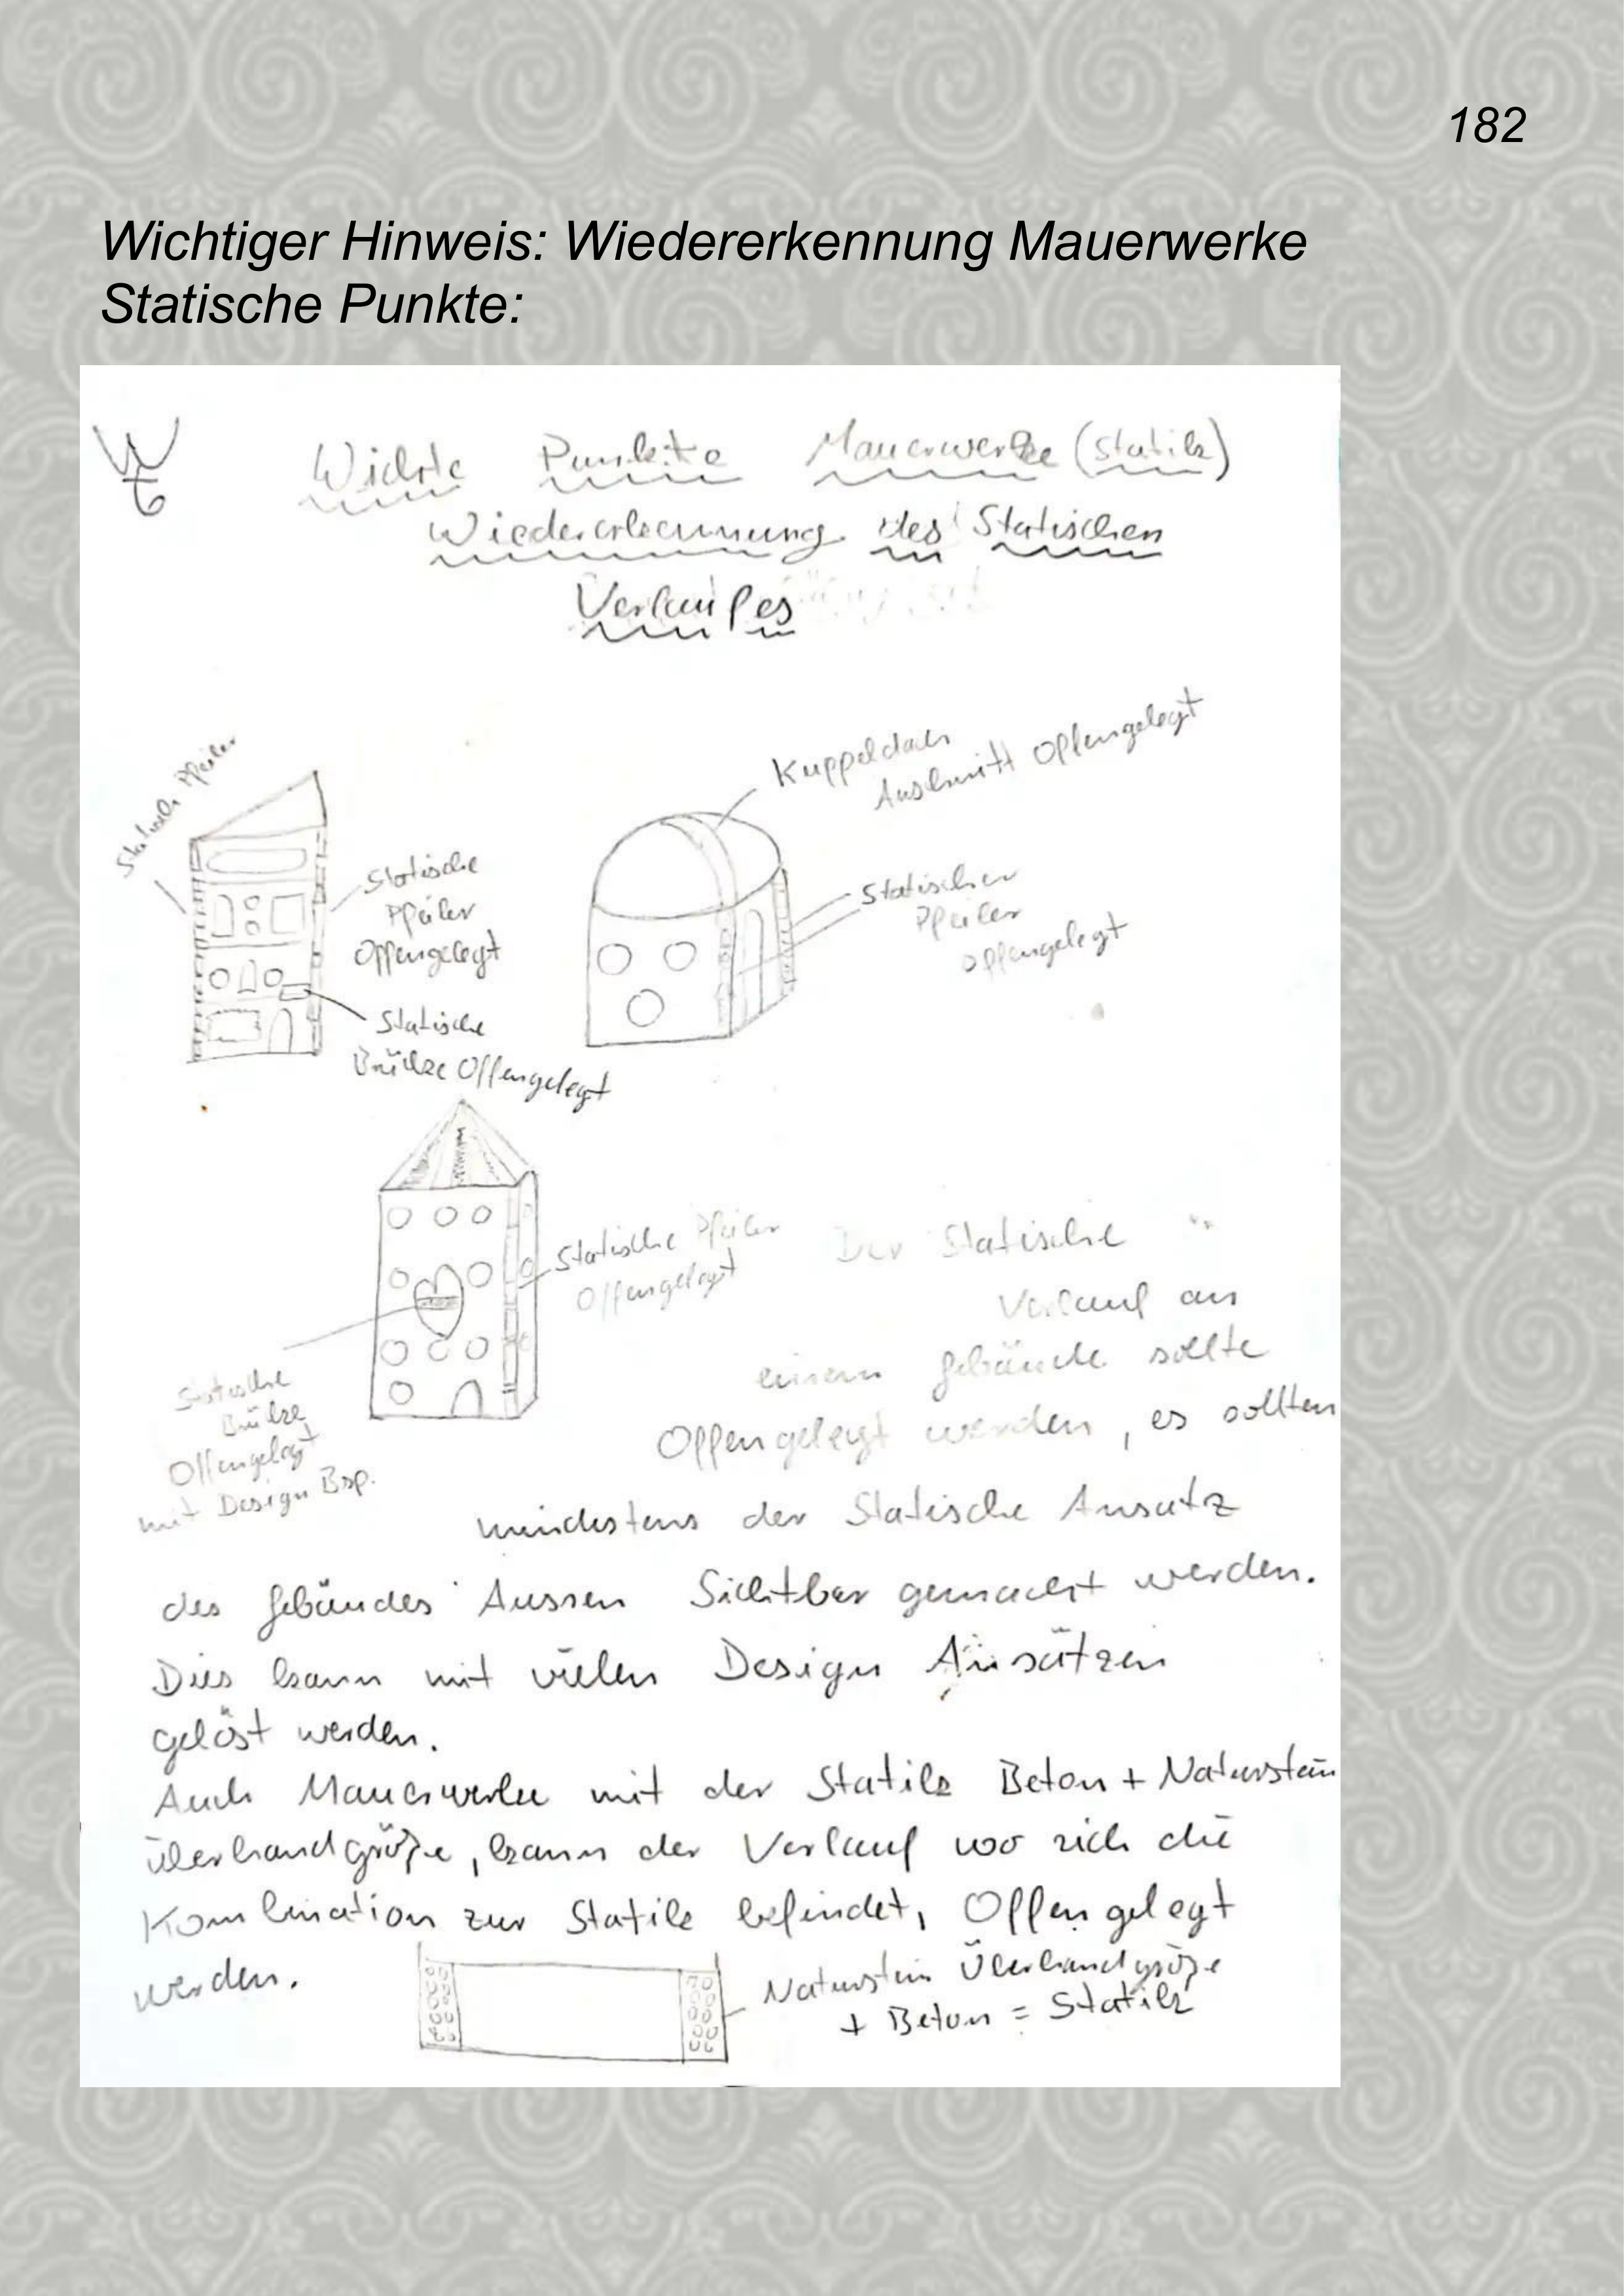 182
Wichtiger Hinweis: Wiedererkennung Mauerwerke
Statische Punkte:
Wichte Punkte Mauerwerke (Statik)
Wiedererkennung des Statischen
Verlaufes
Kuppeldach
Ausschnitt Offengelegt
Statische Pfeiler
Statische
Pfeiler
Offengelegt
Statischer
Pfeiler
offengelegt
Statische
Brücke Offengelegt
Statische Pfeiler
Offengelegt
Statische
Brücke
Offengelegt
mit Design Bsp.
Der Statische
Verlauf an
einem Gebäude sollte
Offengelegt werden, es sollten
mindestens der Statische Ansatz
des Gebäudes Aussen Sichtbar gemacht werden.
Dies kann mit vielen Design Ansätzen
gelöst werden.
Auch Mauerwerke mit der Statik Beton + Naturstein
überhandgröße, kann der Verlauf wo sich die
Kombination zur Statik befindet, Offengelegt
werden.
Naturstein Überhandgröße
+ Beton = Statik